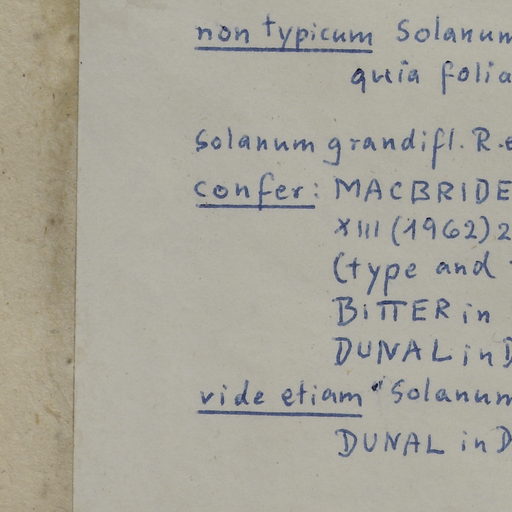 non typicum Solanum
quia folia
Solanum grandifl. R.e
confer: MACBRIDE
XIII (1962) 2
(type and
BITTER in
DUNAL in D
vide etiam "Solanum
DUNAL in D